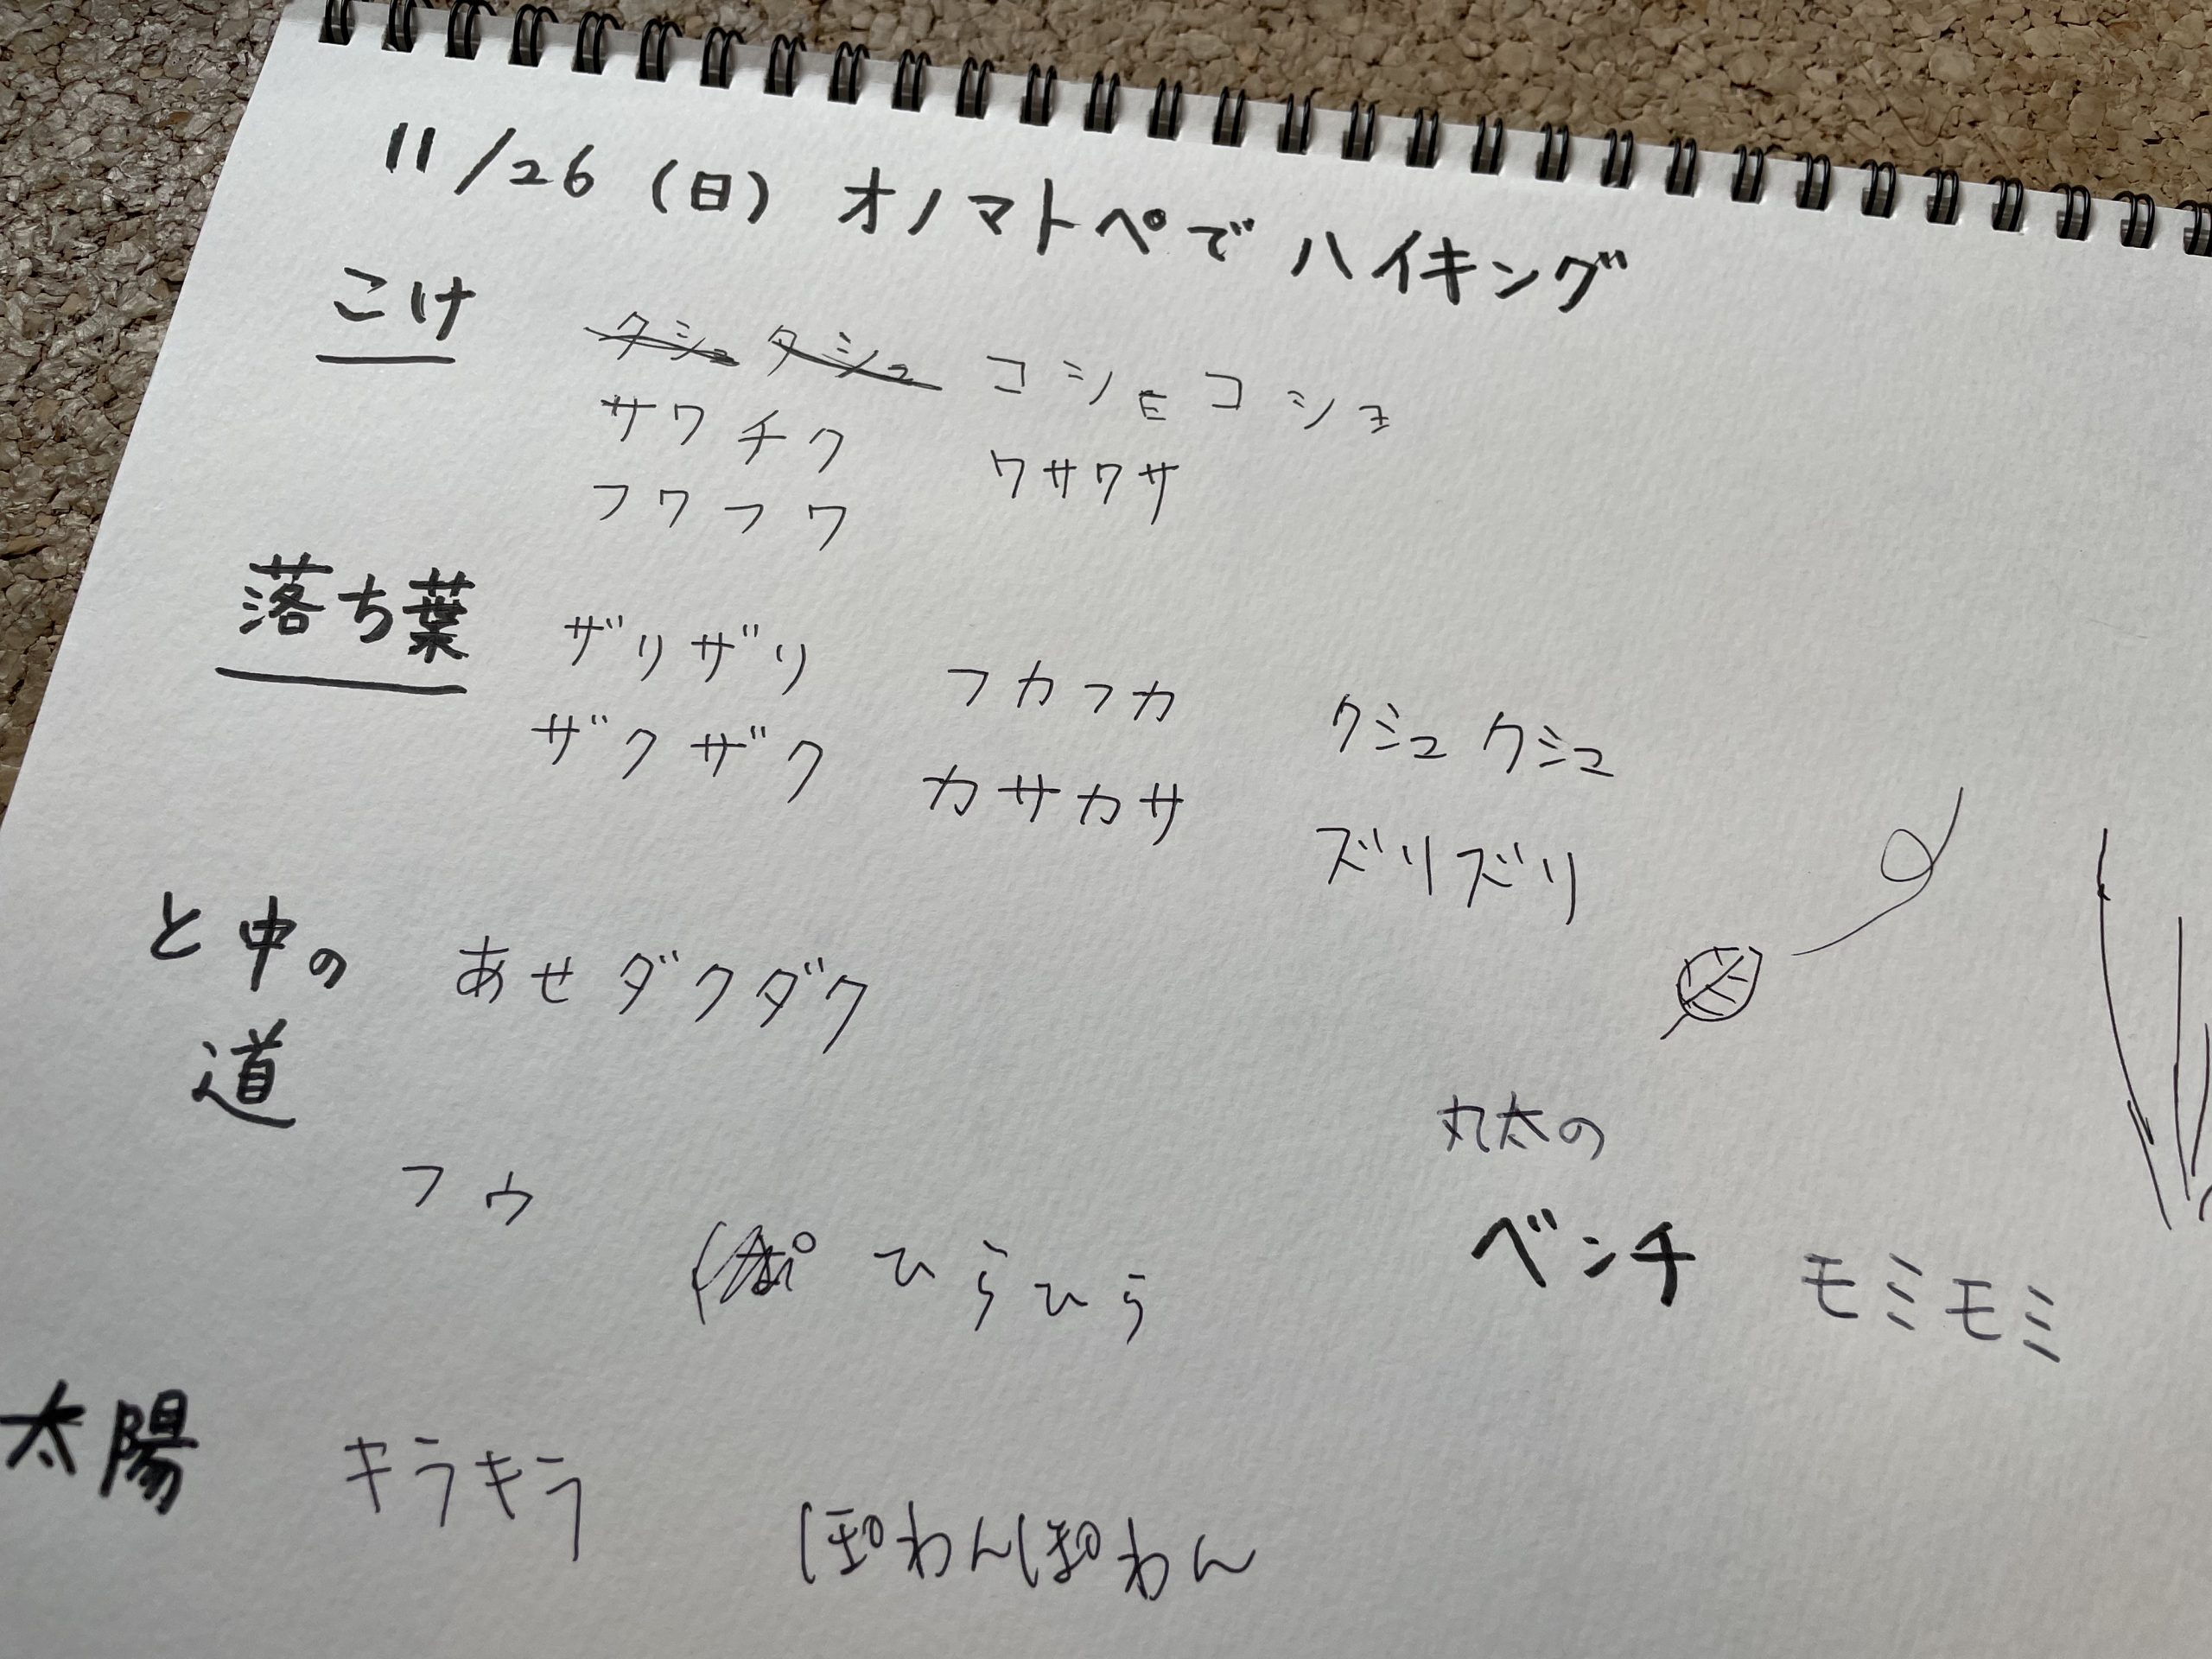 11/26(日)オノマトペでハイキング
こけ
クシュ クシュ コショコショ
サワチク ワサワサ
フワフワ
落ち葉
ザリザリ フカフカ クシュクシュ
ザクザク カサカサ ズリズリ
と中の
道
あせダクダク
フゥ
ひらひら
丸太の
ベンチ モミモミ
太陽 キラキラ
ぽわんぽわん